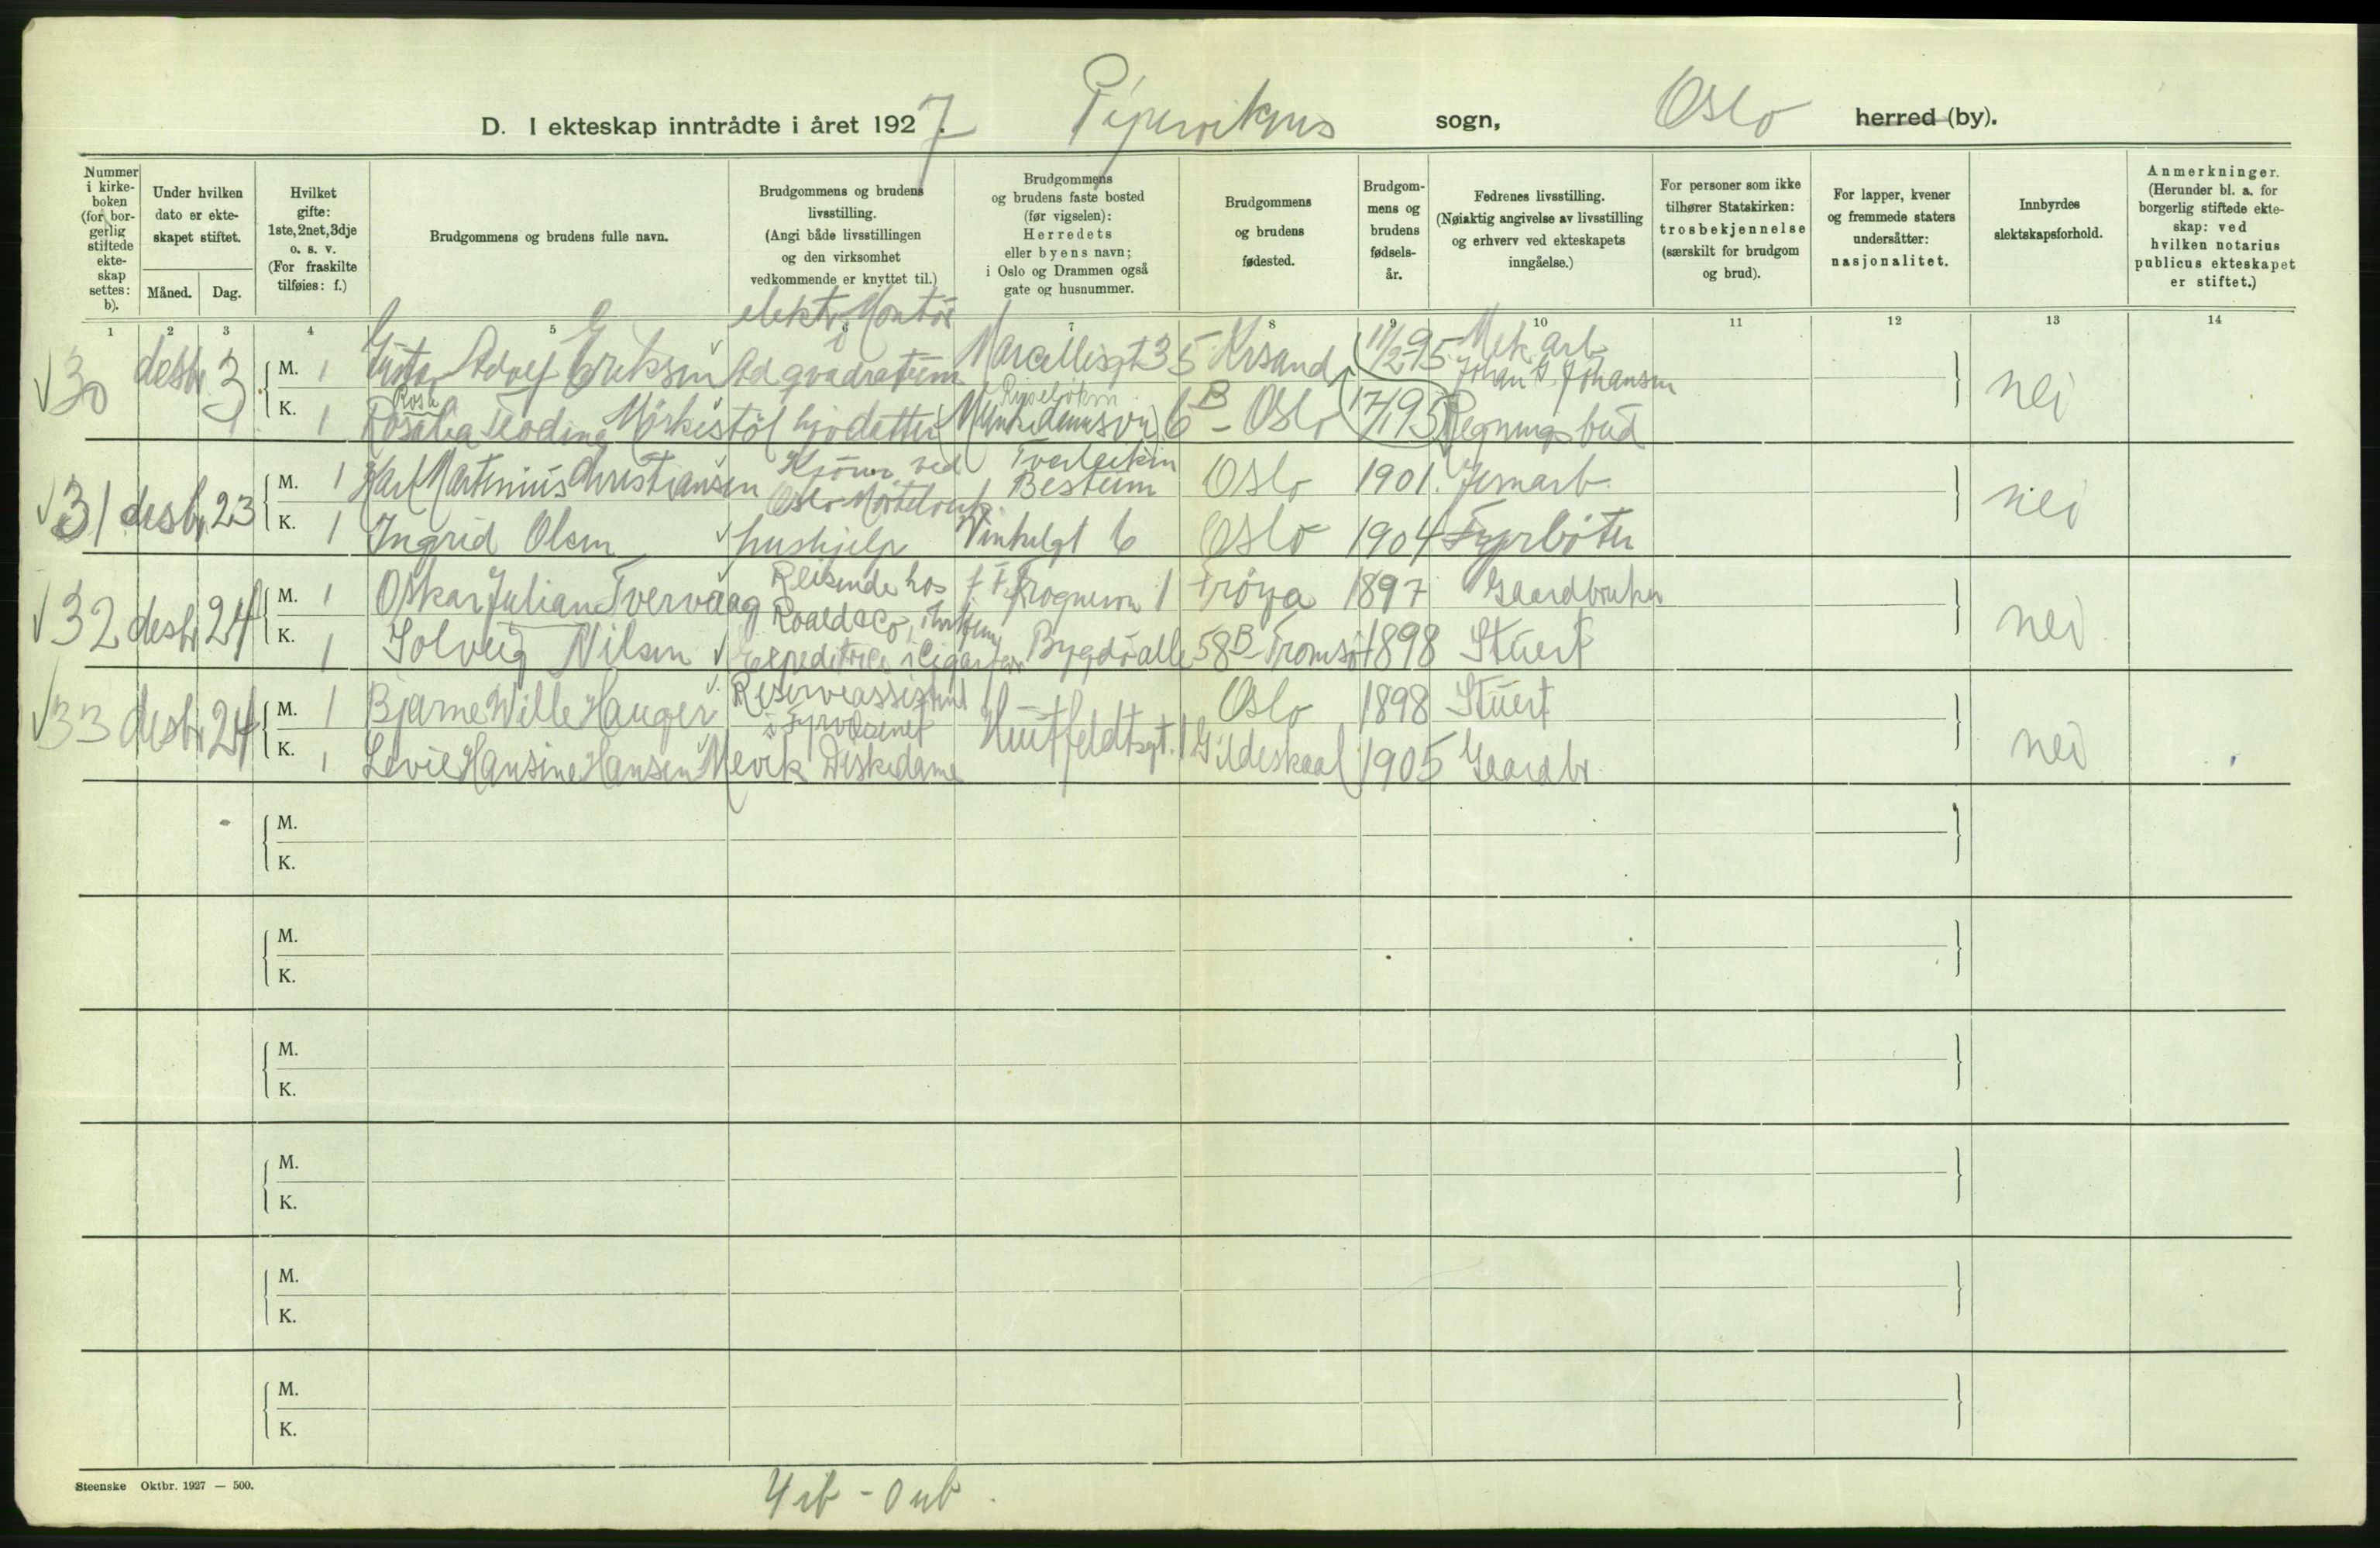 D. I ekteskap inntrådte i året 1927. Pipervikens sogn, Oslo herred (by).
Nummer i kirkeboken (for borgerlig stiftede ekteskap settes: b).
Under hvilken dato er ekteskapet stiftet.
Måned.
Dag.
Hvilket gifte: 1ste, 2net, 3dje o. s. v. (For fraskilte tilføies: f.)
Brudgommens og brudens fulle navn.
Brudgommens og brudens livsstilling. (Angi både livsstillingen og den virksomhet vedkommende er knyttet til.)
Brudgommens og brudens faste bosted (før vigselen): Herredets eller byens navn; i Oslo og Drammen også gate og husnummer.
Brudgommens og brudens fødested.
Brudgommens og brudens fødselsår.
Fedrenes livsstilling. (Nøiaktig angivelse av livsstilling og erhverv ved ekteskapets inngåelse.)
For personer som ikke tilhører Statskirken: trosbekjennelse (særskilt for brudgom og brud).
For lapper, kvener og fremmede staters undersåtter: nasjonalitet.
Innbyrdes slektskapsforhold.
Anmerkninger. (Herunder bl. a. for borgerlig stiftede ekteskap: ved hvilken notarius publicus ekteskapet er stiftet.)
1 2 3 4 5 6 7 8 9 10 11 12 13 14
30 desbr 3 M. 1 Gustav Adolf Eriksen elektr. Montör Ad quadratum Marcellisgt 35 Krsand 11/2 95 Mek. arb. Johan G. Johansen nei
K. 1 Rosa Mörkestöl hjvdatter Munkedamsvn 6B Oslo 17/1 95 Regningsbud
31 desbr 23 M. 1 Karl Martinius Christiansen ved Oslo Bestum Oslo 1901 Jernarb. nei
K. 1 Ingrid Olsen hushjelp Vinkelgt 6 Oslo 1904 Fyrböter
32 desbr 24 M. 1 Oskar Julian Tvervaag Reisende hos Roald & Co, Frognerv 1 Fröya 1897 Gaardbruker nei
K. 1 Solveig Nilsen Expeditrice i Cigarforr Bygdö alle 58B Tromsö 1898 Stuert
33 desbr 24 M. 1 Bjarne Wille Hauger Reserveassistent i Fyrvesenet Huitfeldtsgt. 1 Oslo 1898 Stuert nei
K. 1 Levie Hansine Hansen Mevik Diskedame Gildeskaal 1905 Gaardbr.
M.
K.
M.
K.
M.
K.
M.
K.
M.
K.
M.
K.
Steenske Oktbr. 1927 — 500.
4 ib - 0 ub